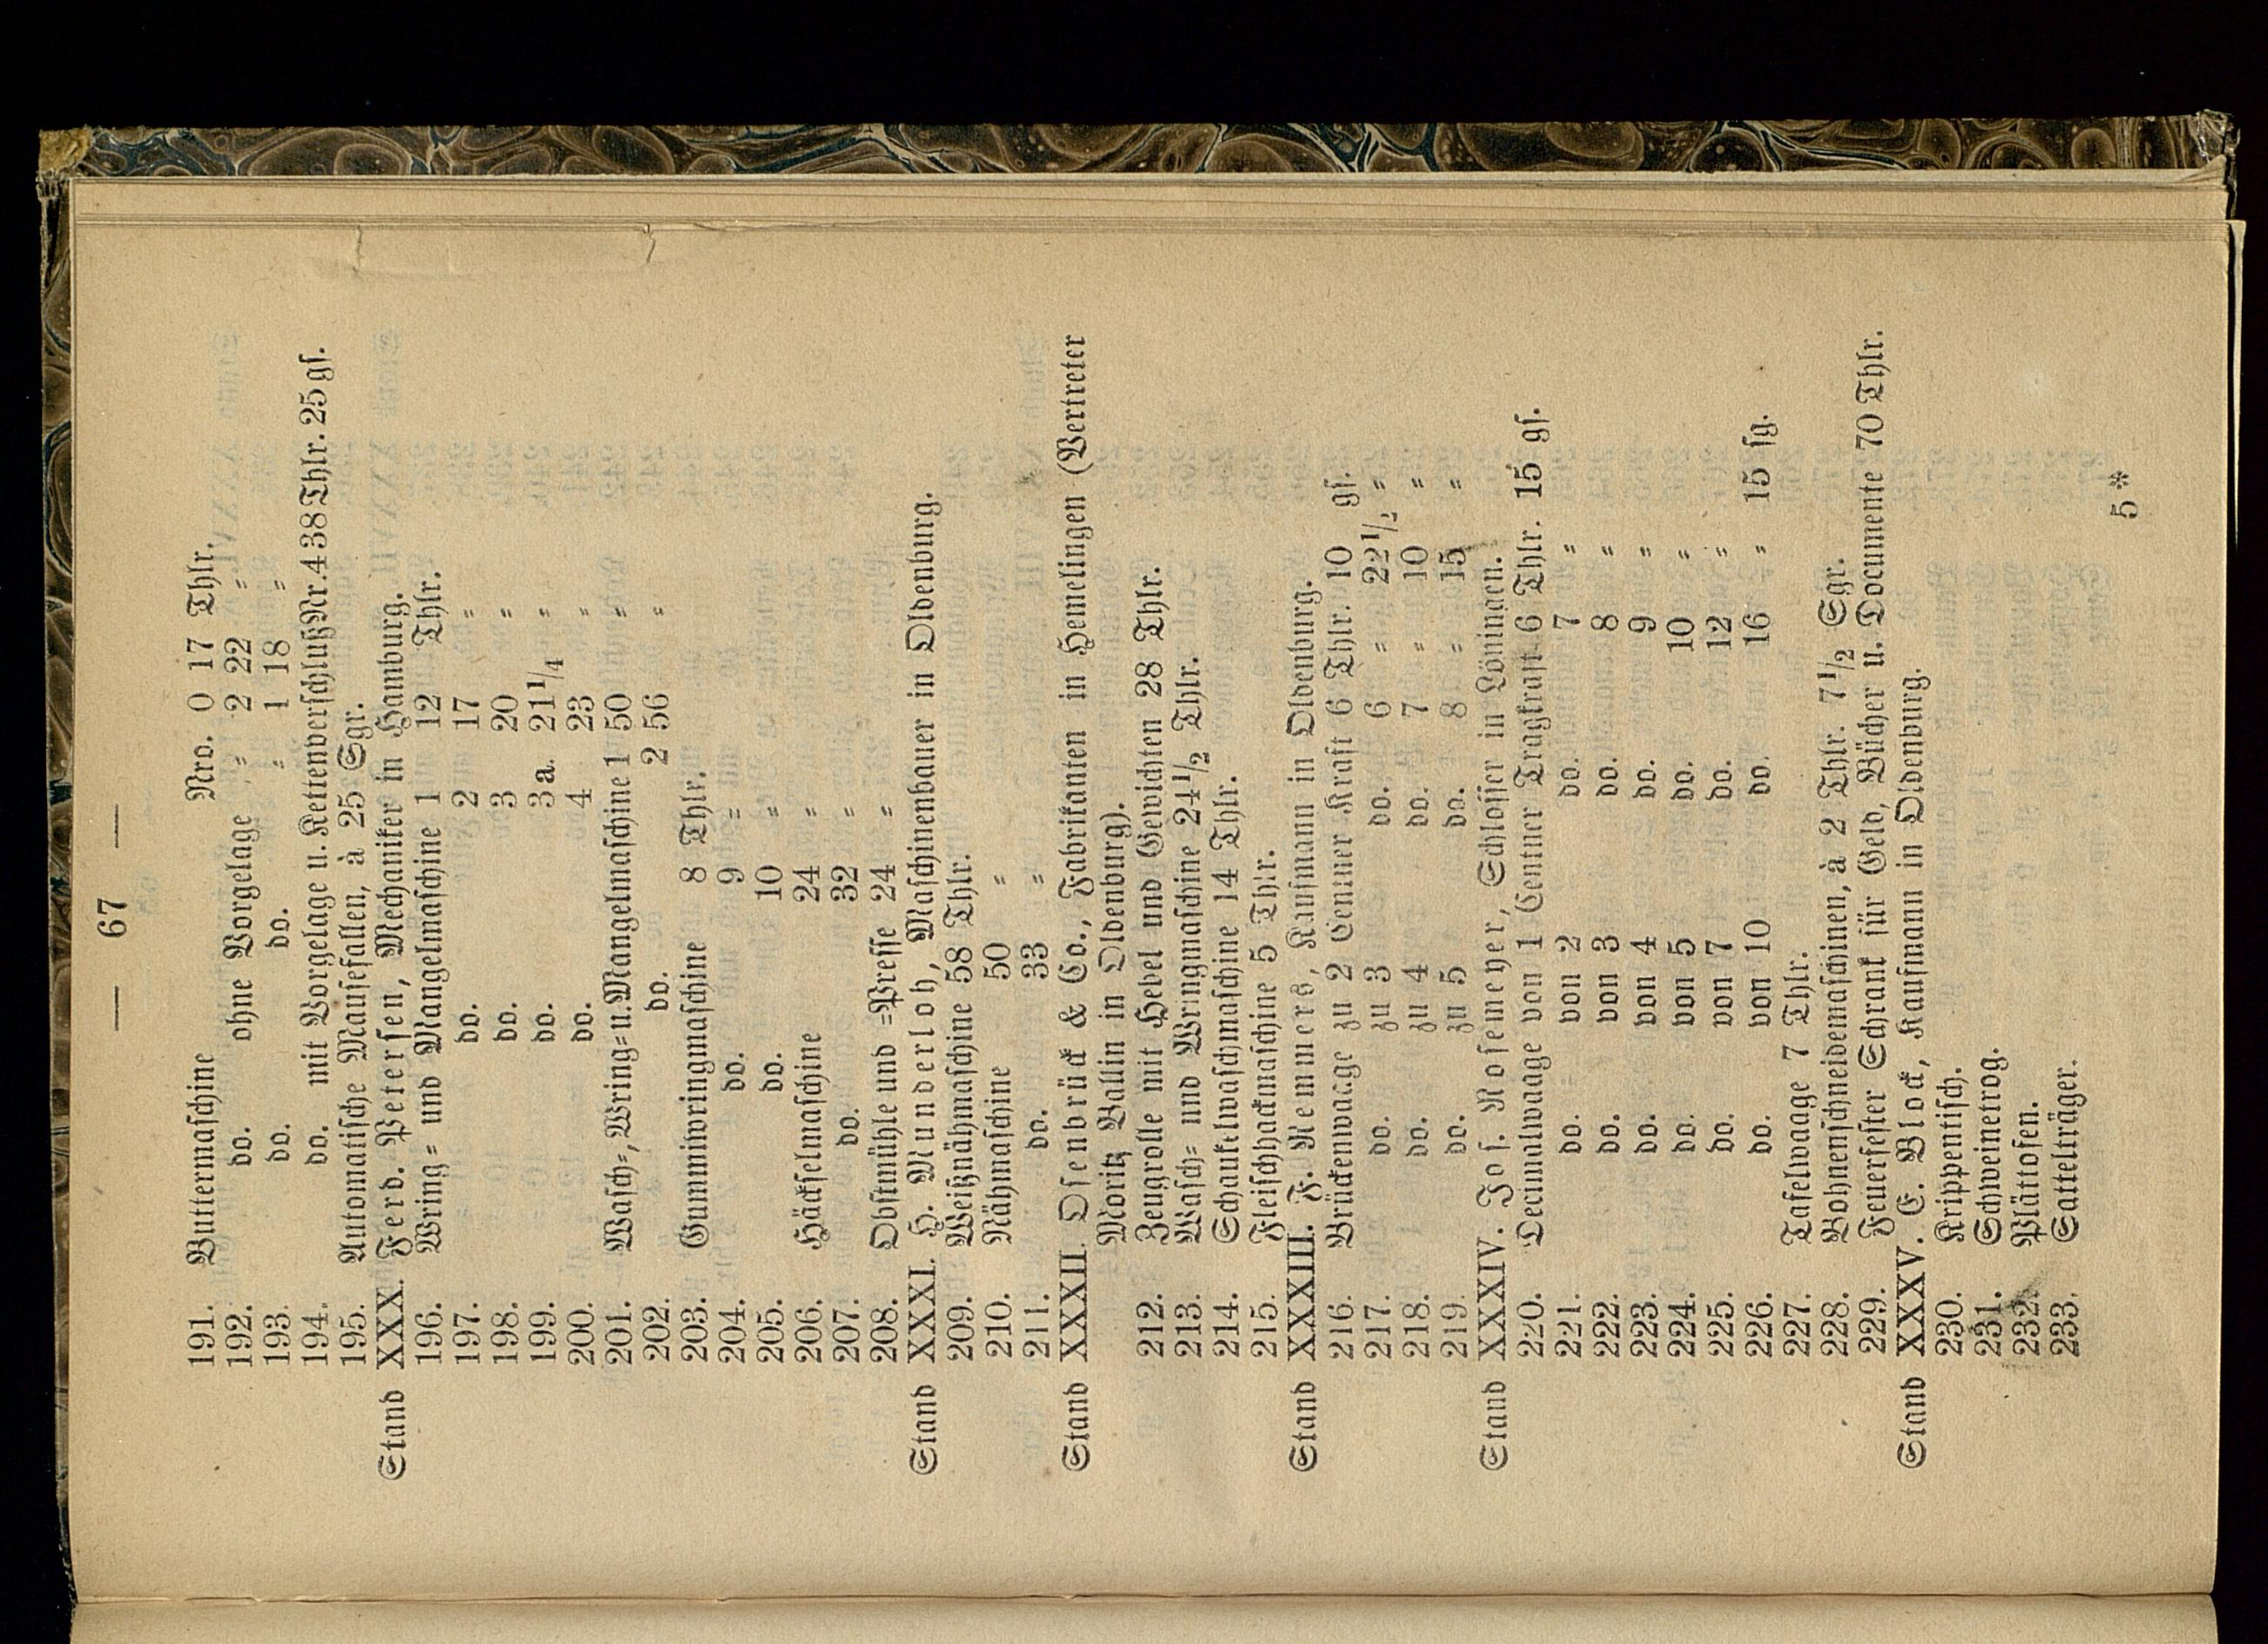 — 67 —
191. Buttermaschine Nro. 0 17 Thlr.
192. do. ohne Vorgelage „ 2 22 „
193. do. do. „ 1 18 „
194. do. mit Vorgelage u. Kettenverschluß Nr. 4 38 Thlr. 25 gs.
195. Automatische Mausefallen, à 25 Sgr.
Stand XXX. Ferd. Petersen, Mechaniker in Hamburg.
196. Wring= und Mangelmaschine 1 12 Thlr.
197. do. 2 17 „
198. do. 3 20 „
199. do. 3a. 21 1/4 „
200. do. 4 23 „
201. Wasch=, Wring= u. Mangelmaschine 1 50 „
202. do. 2 56 „
203. Gummiwringmaschine 8 Thlr.
204. do. 9 „
205. do. 10 „
206. Häckselmaschine 24 „
207. do. 32 „
208. Obstmühle und =Presse 24 „
Stand XXXI. H. Munderloh, Maschinenbauer in Oldenburg.
209. Weißnähmaschine 58 Thlr.
210. Nähmaschine 50 „
211. do. 33 „
Stand XXXII. Osenbrück & Co., Fabrikanten in Hemelingen (Vertreter
Moritz Ballin in Oldenburg).
212. Zeugrolle mit Hebel und Gewichten 28 Thlr.
213. Wasch= und Wringmaschine 24 1/2 Thlr.
214. Schaukelwaschmaschine 14 Thlr.
215. Fleischhackmaschine 5 Thlr.
Stand XXXIII. F. Remmers, Kaufmann in Oldenburg.
216. Brückenwaage zu 2 Centner Kraft 6 Thlr. 10 gs.
217. do. zu 3 do. 6 „ 22 1/2 „
218. do. zu 4 do. 7 „ 10 „
219. do. zu 5 do. 8 „ 15 „
Stand XXXIV. Jos. Rosemeyer, Schlosser in Löningen.
220. Decimalwaage von 1 Centner Tragkraft 6 Thlr. 15 gs.
221. do. von 2 do. 7 „
222. do. von 3 do. 8 „
223. do. von 4 do. 9 „
224. do. von 5 do. 10 „
225. do. von 7 do. 12 „
226. do. von 10 do. 16 „ 15 sg.
227. Tafelwaage 7 Thlr.
228. Bohnenschneidemaschinen, à 2 Thlr. 7 1/2 Sgr.
229. Feuerfester Schrank für Geld, Bücher u. Documente 70 Thlr.
Stand XXXV. E. Block, Kaufmann in Oldenburg.
230. Krippentisch.
231. Schweinetrog.
232. Plättofen.
233. Sattelträger.
5*